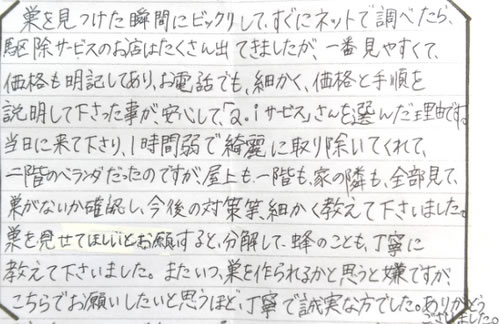 巣を見つけた瞬間にビックリして、すぐにネットで調べたら、
駆除サービスのお店はたくさん出てきましたが、一番見やすくて、
価格も明記してあり、お電話でも、細かく、価格と手順を
説明して下さった事が、安心して、「2.iサービス」さんを選んだ理由です。
当日に来て下さり、1時間弱で綺麗に取り除いてくれて、
二階のベランダだったのですが、屋上も、一階も、家の隣も、全部見て、
巣がないか確認し、今後の対策等、細かく教えて下さいました。
巣を見せてほしいとお願すると、分解して、蜂のことも、丁寧に
教えて下さいました。またいつ、巣を作られるかと思うと嫌ですが
こちらでお願いしたいと思うほど、丁寧で誠実な方でした。ありがとう
ございました。